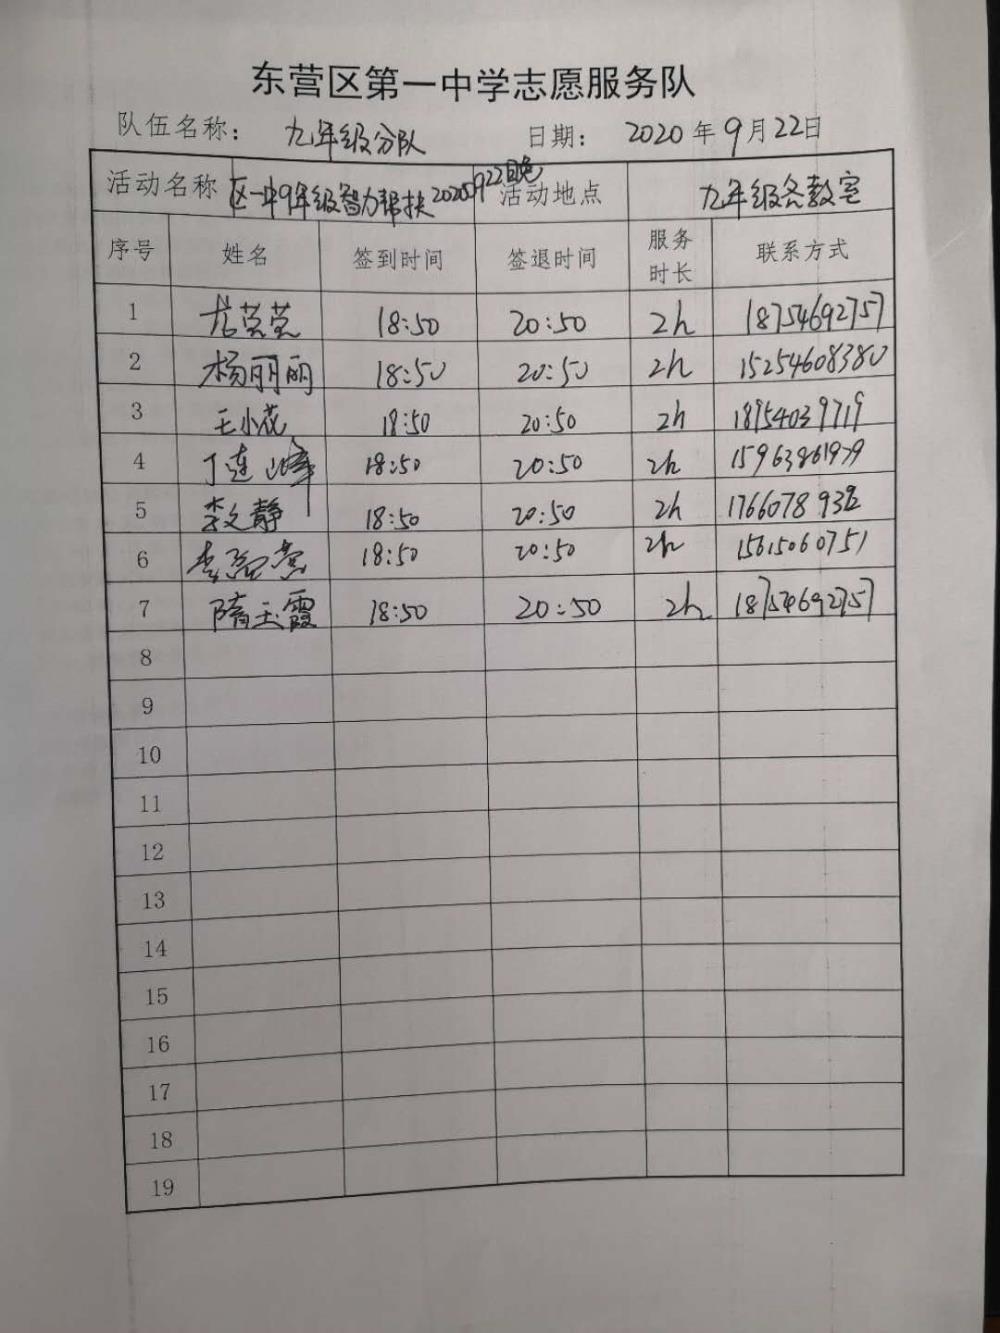 东营区第一中学志愿服务队
队伍名称： 九年级分队 日期： 2020年9月22日
活动名称 区一中9年级智力帮扶2020922日晚 活动地点 九年级各教室
序号 姓名 签到时间 签退时间 服务时长 联系方式
1 18:50 20:50 2h 18754692757
2 杨丽丽 18:50 20:50 2h 15254608380
3 王小花 18:50 20:50 2h 18954039719
4 丁连峰 18:50 20:50 2h 15963861979
5 李文静 18:50 20:50 2h
6 18:50 20:50 2h 15615060751
7 隋玉霞 18:50 20:50 2h 18754692757
8
9
10
11
12
13
14
15
16
17
18
19